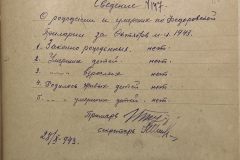 Сведение №17.
О рождении и умерших по Федоровской
примарии за Октябрь м-ц 1943.
1. Законно рожденных. нет.
2. Умерших детей. нет.
3. взрослых нет.
4. Родилось детей: нет.
5. умерших детей: нет.
Примарь
Секретарь
28/X-943.